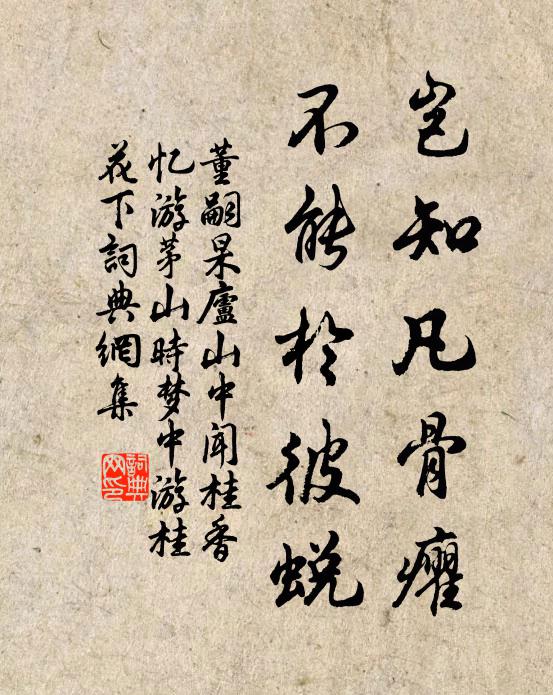 岂知凡骨癯
不能於彼蜕
董嗣杲廬山中闻桂香
忆游茅山時梦中游桂
花下詞典網集
詞典
网印